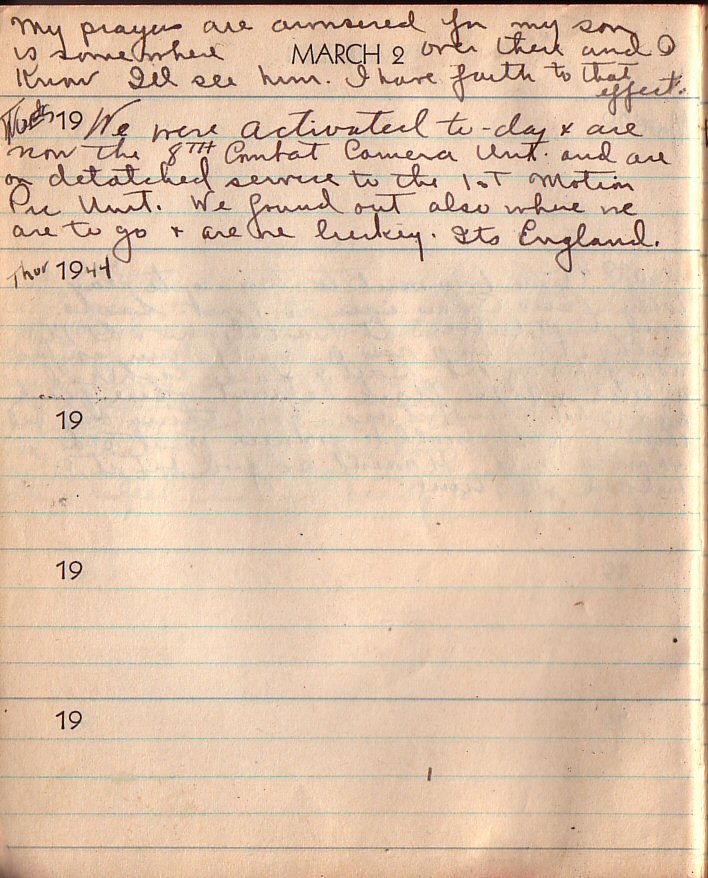 My prayers are answered for my son
is somewhere MARCH 2 over there and I
Know I'll see him. I have faith to that
effect.
19 We were activated to-day & are
now the 8TH Combat Camera Unit. and are
on detatched service to the 1ST Motion
Pic Unit. We found out also where we
are to go & are we lucky. Its England.
Thur 1944
19
19
19